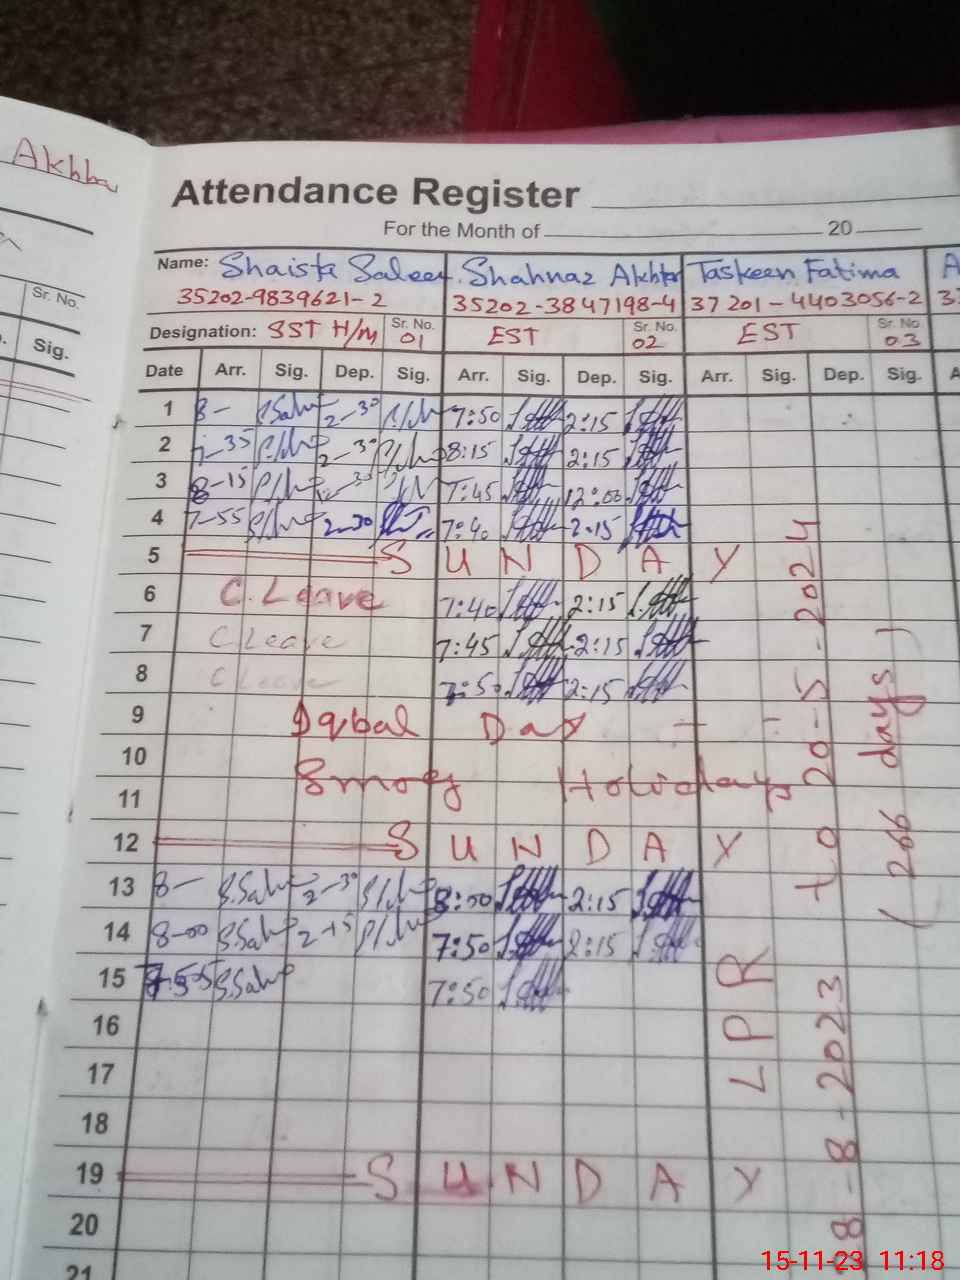 Akhba
Sr. No.
Sig.
Attendance Register
For the Month of 20
Name: Shaista Saleem Shahnaz Akhtar Taskeen Fatima A
35202-9839621-2 35202-3847198-4 37201-4403056-2 3
Designation: SST H/M Sr. No. 01 EST Sr. No. 02 EST Sr. No. 03
Date Arr. Sig. Dep. Sig. Arr. Sig. Dep. Sig. Arr. Sig. Dep. Sig. A
1 8- 2-30 7:50 2:15
2 7-35 2-30 8:15 2:15
3 8-15 12-30 7:45 12:00
4 7-55 2-30 7:40 2:15
5 SUNDAY
6 C. Leave 7:40 2:15
7 C Leave 7:45 2:15
8 C Leave 7:50 2:15
9 Iqbal Day
10 Smog Holidays
11
12 SUNDAY
13 8- 2-30 8:00 2:15
14 8-00 2-15 7:50 2:15
15 7:55 7:50
16
17
18
19 SUNDAY
20
21
LPR
8-8-2023 to 20-5-2024
(266 days)
15-11-23 11:18